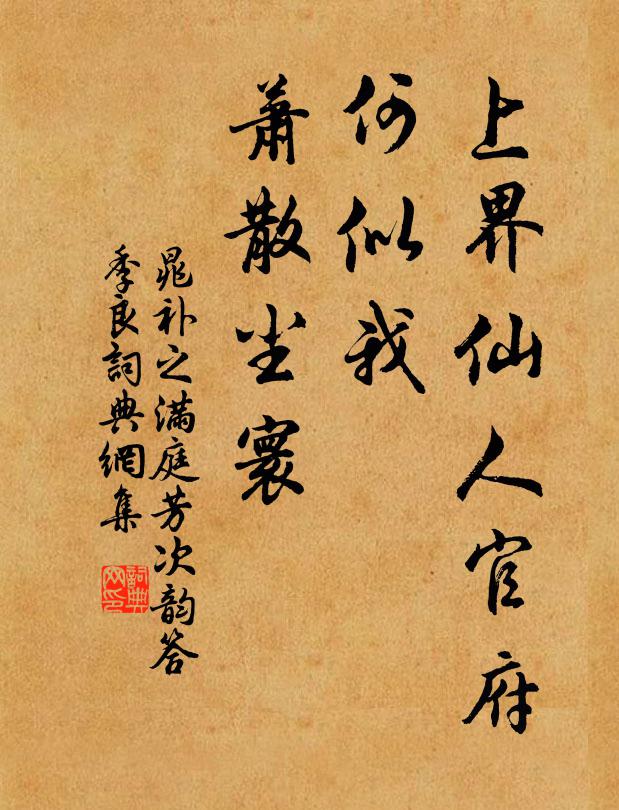 上界仙人官府
何似我
萧散尘寰
晁补之满庭芳次韵答
季良詞典網集
詞典
网印